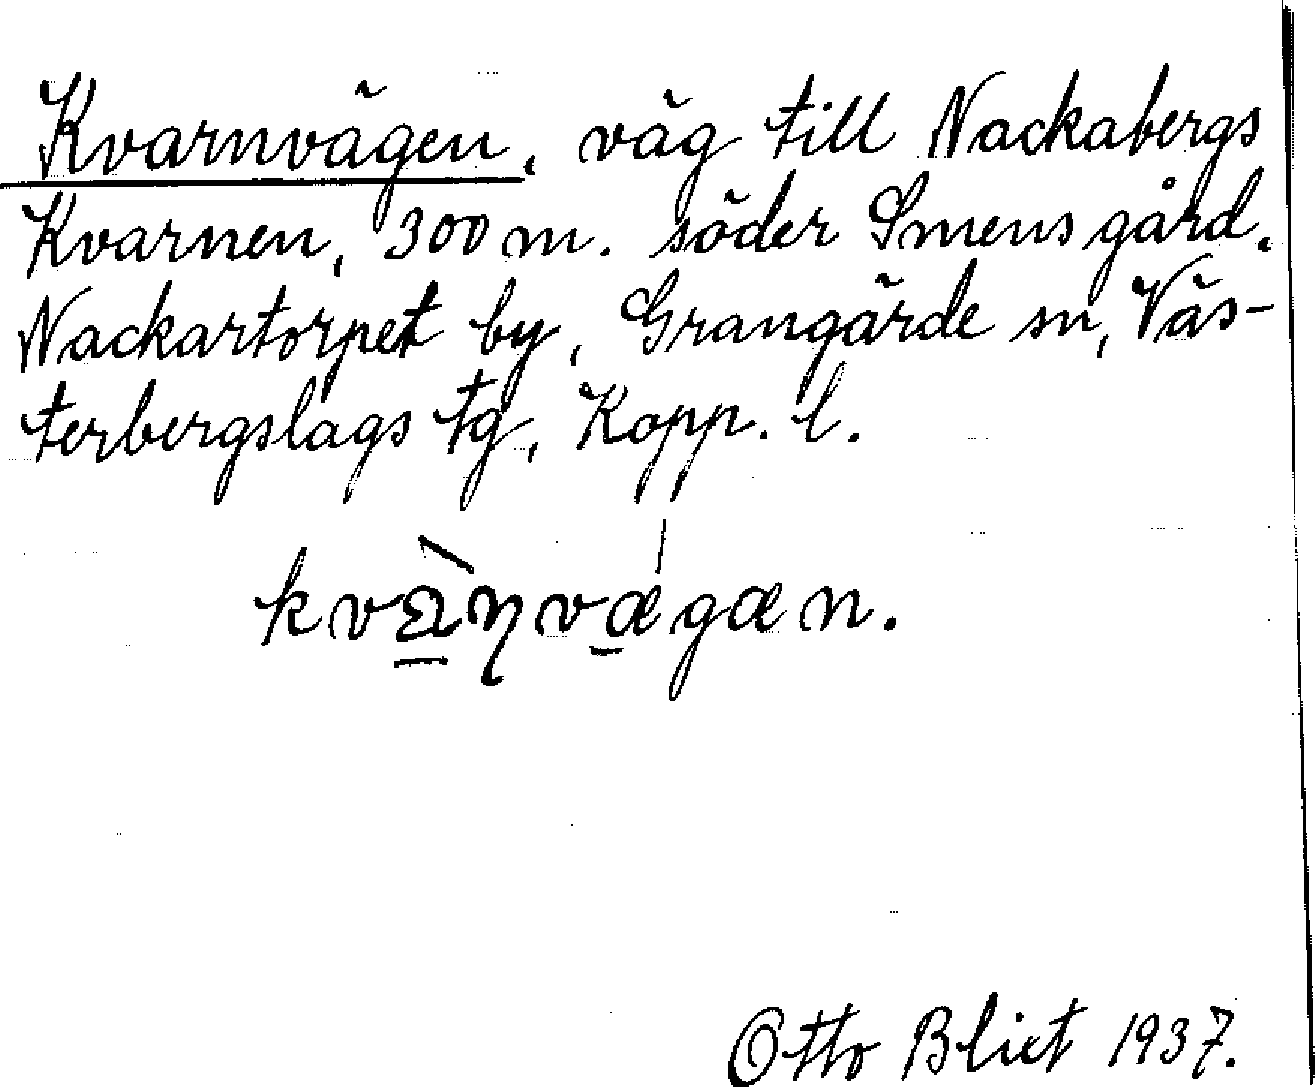 Kvarnvägen, väg till Nackabergs
Kvarnen, 300 m. söder Smens gård,
Nackartorpet by, Grangärde sn, Väs-
terbergslags tg, Kopp. l.
Otto Blixt 1937.